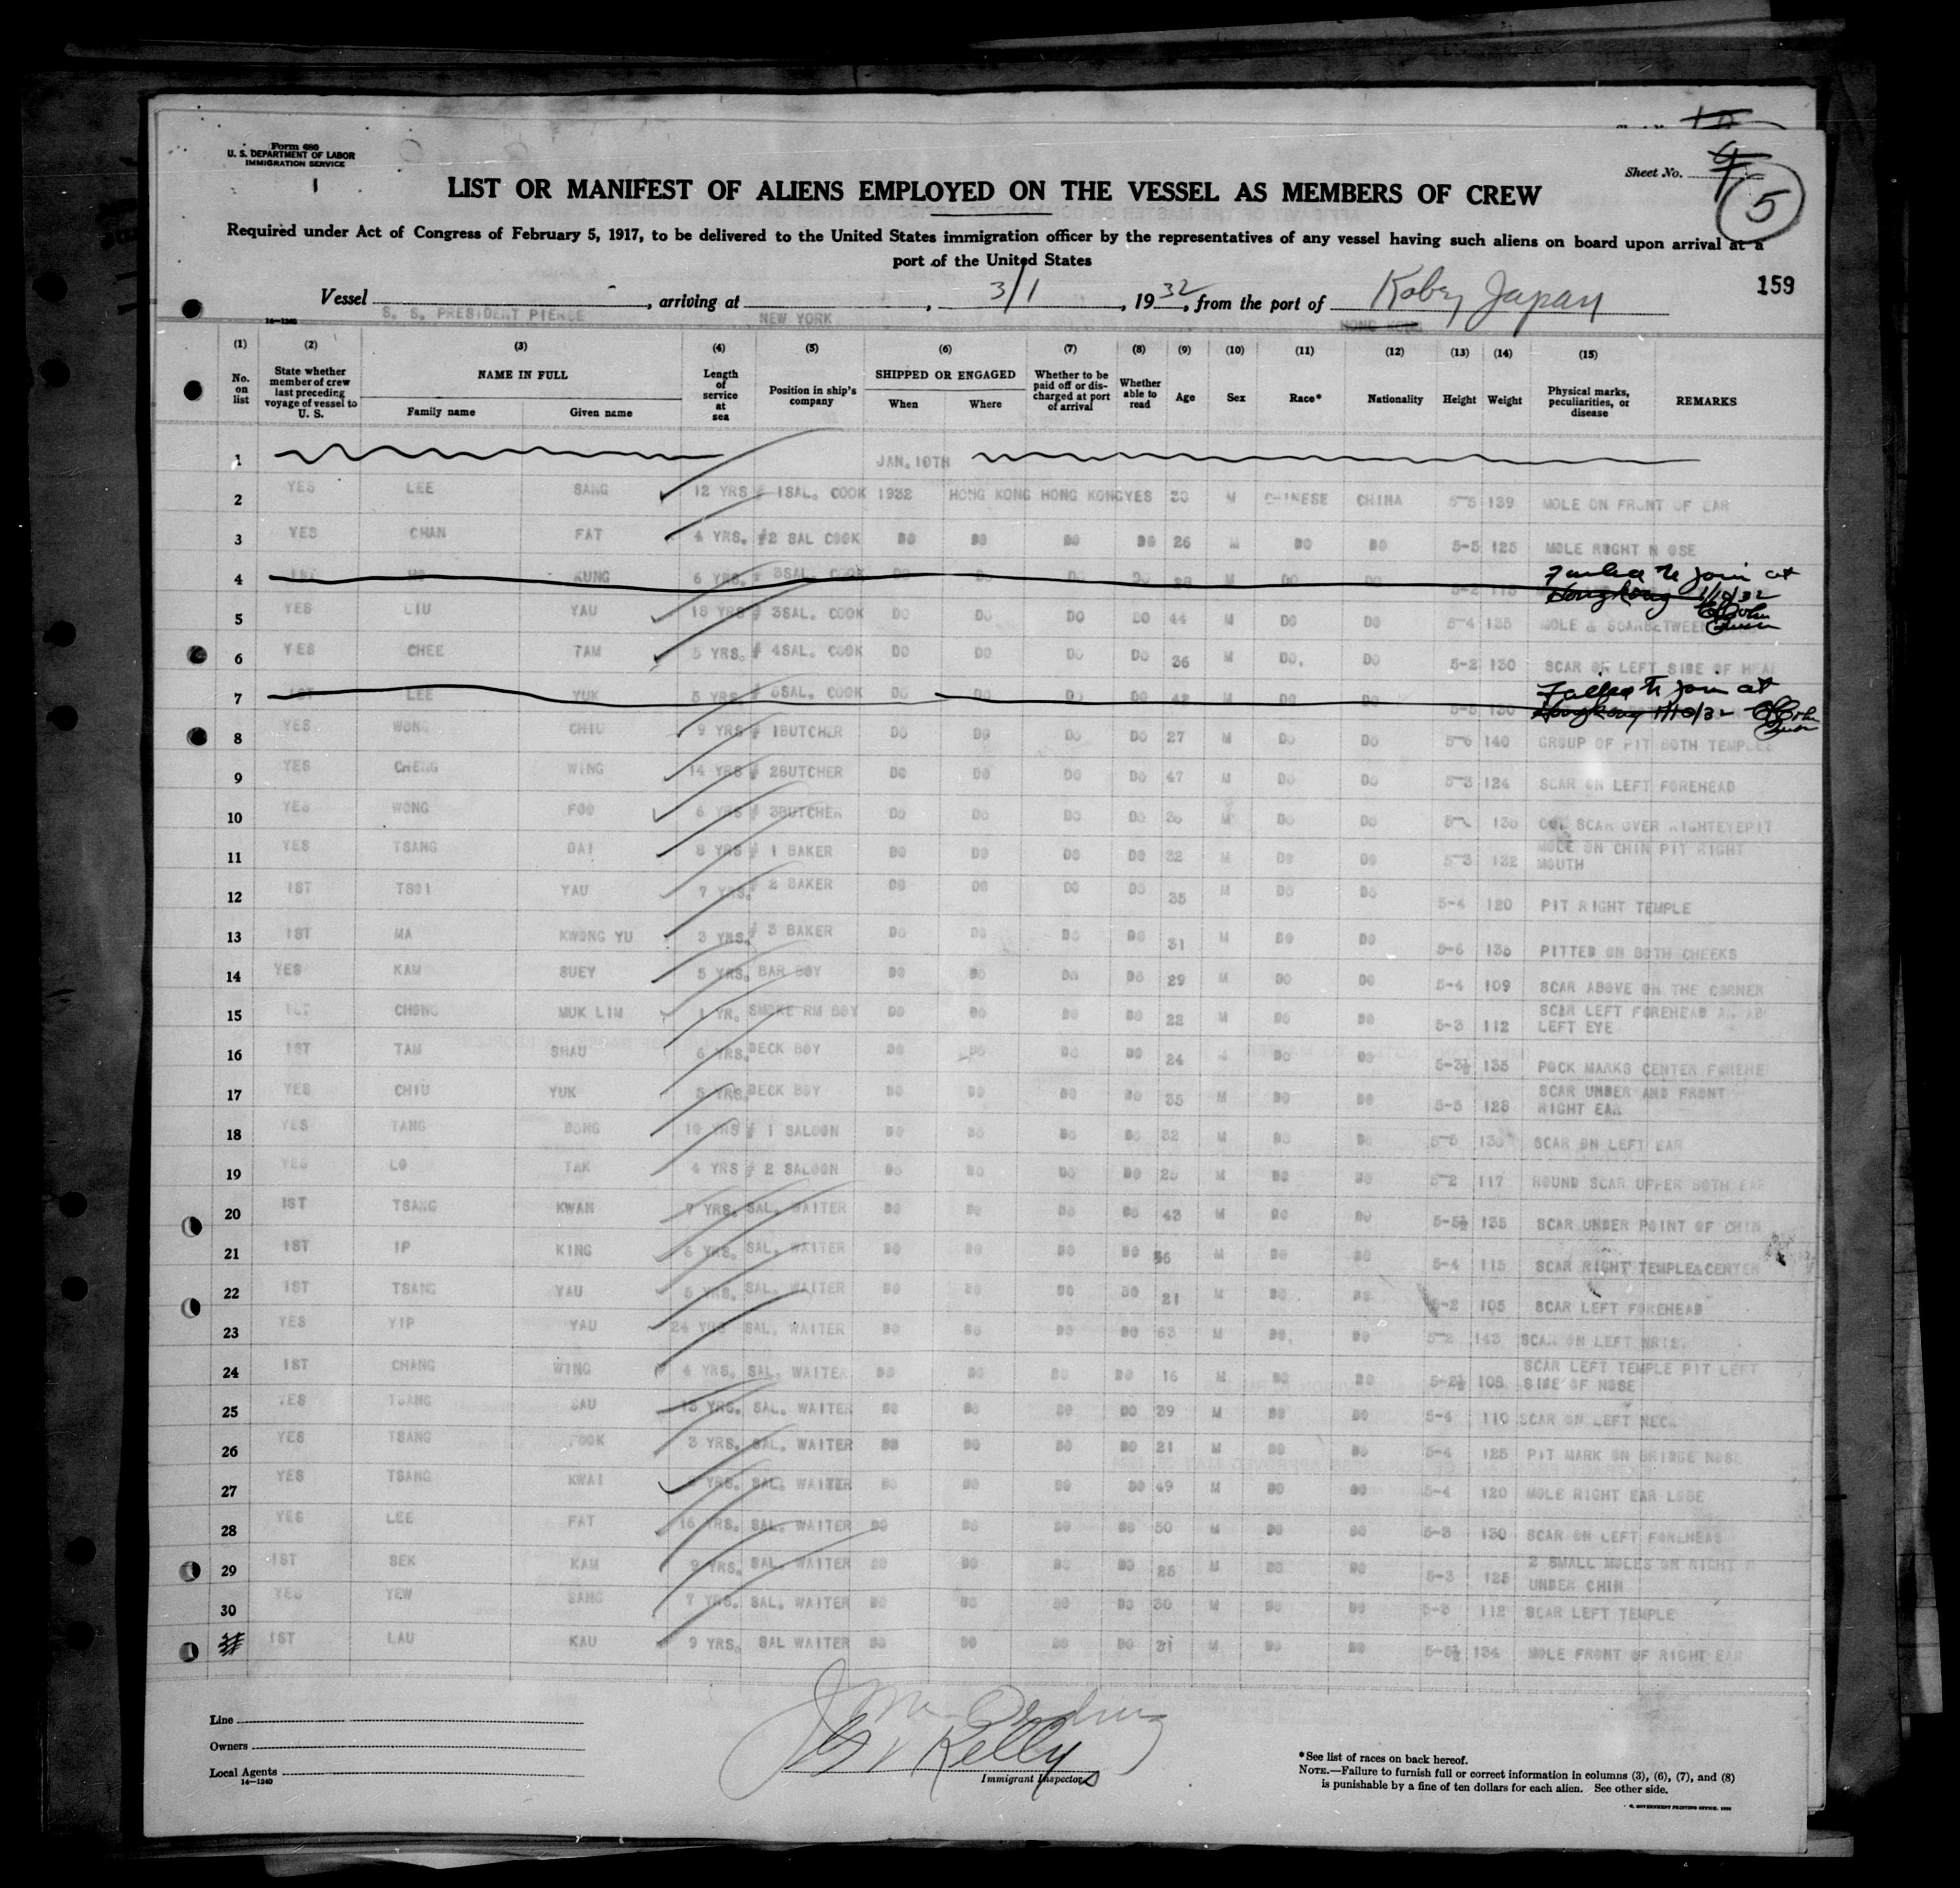 Form 680
U. S. DEPARTMENT OF LABOR
IMMIGRATION SERVICE
Sheet No.
5
LIST OR MANIFEST OF ALIENS EMPLOYED ON THE VESSEL AS MEMBERS OF CREW
Required under Act of Congress of February 5, 1917, to be delivered to the United States immigration officer by the representatives of any vessel having such aliens on board upon arrival at a
port of the United States
159
Vessel S. S. PRESIDENT PIERCE, arriving at NEW YORK, 3/1, 1932, from the port of Kobe, Japan
HONG KONG
14-1240
(1) (2) (3) (4) (5) (6) (7) (8) (9) (10) (11) (12) (13) (14) (15)
No. on list State whether member of crew last preceding voyage of vessel to U. S. NAME IN FULL Family name Given name Length of service at sea Position in ship's company SHIPPED OR ENGAGED When Where Whether to be paid off or discharged at port of arrival Whether able to read Age Sex Race* Nationality Height Weight Physical marks, peculiarities, or disease REMARKS
1 JAN. 10TH
2 YES LEE SANG 12 YRS # 1SAL. COOK 1932 HONG KONG HONG KONG YES 30 M CHINESE CHINA 5-5 139 MOLE ON FRONT OF EAR
3 YES CHAN FAT 4 YRS. #2 SAL COOK DO DO DO DO 26 M DO DO 5-5 125 MOLE RIGHT N OSE
4 1ST HO KUNG 6 YRS. # 3SAL. COOK DO DO DO DO 28 M DO DO 5-2 Failed to join at Hongkong 1/10/32
5 YES LIU YAU 18 YRS # 3SAL. COOK DO DO DO DO 44 M DO DO 5-4 135 MOLE & SCARBETWEEN
6 YES CHEE TAM 5 YRS. # 4SAL. COOK DO DO DO DO 36 M DO. DO 5-2 130 SCAR ON LEFT SIDE OF HEA
7 1ST LEE YUK 5 YRS # 5SAL. COOK DO DO DO DO 42 M DO DO 5-5 130 Failed to join at Hongkong 1/10/32
8 YES WONG CHIU 9 YRS # 1BUTCHER DO DO DO DO 27 M DO DO 5-6 140 GROUP OF PIT BOTH TEMPLES
9 YES CHENG WING 14 YRS # 2BUTCHER DO DO DO DO 47 M DO DO 5-3 124 SCAR ON LEFT FOREHEAD
10 YES WONG FOO 6 YRS # 3BUTCHER DO DO DO DO M DO DO SCAR OVER RIGHTEYEPIT
11 YES TSANG DAI 8 YRS # 1 BAKER DO DO DO DO 32 M DO DO 5-3 122 MOLE ON CHIN PIT RIGHT
MOUTH
12 1ST TSOI YAU 7 YRS. # 2 BAKER DO DO DO DO 35 M DO DO 5-4 120 PIT RIGHT TEMPLE
13 1ST MA KWONG YU 3 YRS. # 3 BAKER DO DO DO DO 31 M DO DO 5-6 PITTED ON BOTH CHEEKS
14 YES KAM SUEY 5 YRS. BAR BOY DO DO DO DO 29 M DO DO 5-4 109 SCAR ABOVE ON THE CORNER
15 1ST CHONG MUK LIM 1 YR. SMOKE RM BOY DO DO DO DO 22 M DO DO 5-3 112 SCAR LEFT FOREHEAD
LEFT EYE
16 1ST TAM SHAU 6 YRS. DECK BOY DO DO DO DO 24 M DO DO 5-3½ 135 POCK MARKS CENTER FOREHE
17 YES CHIU YUK 5 YRS. DECK BOY DO DO DO DO 35 M DO DO 5-5 128 SCAR UNDER AND FRONT
RIGHT EAR
18 YES TANG BONG 10 YRS # 1 SALOON DO DO DO DO 32 M DO DO 5-5 SCAR ON LEFT EAR
19 YES LO TAK 4 YRS # 2 SALOON DO DO DO DO M DO DO 5-2 117 ROUND SCAR UPPER BOTH EAR
20 1ST TSANG KWAN 7 YRS. SAL. WAITER DO DO DO DO 43 M DO DO 5-5½ 135 SCAR UNDER POINT OF CHIN
21 1ST IP KING 6 YRS. SAL. WAITER DO DO DO DO 36 M DO DO 5-4 115 SCAR RIGHT TEMPLE&CENTER
22 1ST TSANG YAU 5 YRS. SAL. WAITER DO DO DO DO 21 M DO DO 5-2 105 SCAR LEFT FOREHEAD
23 YES YIP YAU 24 YRS SAL. WAITER DO DO DO DO 53 M DO. DO 5-2 143 SCAR ON LEFT WRIST
24 1ST CHANG WING 4 YRS. SAL. WAITER DO DO DO DO 16 M DO DO 5-2½ 108 SCAR LEFT TEMPLE PIT LEFT
SIDE OF NOSE
25 YES TSANG SAU YRS. SAL. WAITER DO DO DO DO 39 M DO DO 5-4 110 SCAR ON LEFT NECK
26 YES TSANG FOOK 3 YRS. SAL. WAITER DO DO DO DO 21 M DO DO 5-4 125 PIT MARK ON BRIDGE NOSE
27 YES TSANG KWAI YRS. SAL. WAITER DO DO DO DO 49 M DO DO 5-4 120 MOLE RIGHT EAR LOBE
28 YES LEE FAT 16 YRS. SAL. WAITER DO DO DO DO 50 M DO DO 5-3 130 SCAR ON LEFT FOREHEAD
29 1ST SEK KAM 9 YRS. SAL. WAITER DO DO DO DO 25 M DO DO 5-3 125 2 SMALL MOLES ON RIGHT
UNDER CHIN
30 YES YEW SANG 7 YRS. SAL. WAITER DO DO DO DO 30 M DO DO 5-3 112 SCAR LEFT TEMPLE
1ST LAU KAU 9 YRS. SAL WAITER DO DO DO DO 31 M DO DO 5-5½ 134 MOLE FRONT OF RIGHT EAR
Line
Owners
Local Agents
14-1240
Kelly
Immigrant Inspector
*See list of races on back hereof.
NOTE.—Failure to furnish full or correct information in columns (3), (6), (7), and (8)
is punishable by a fine of ten dollars for each alien. See other side.